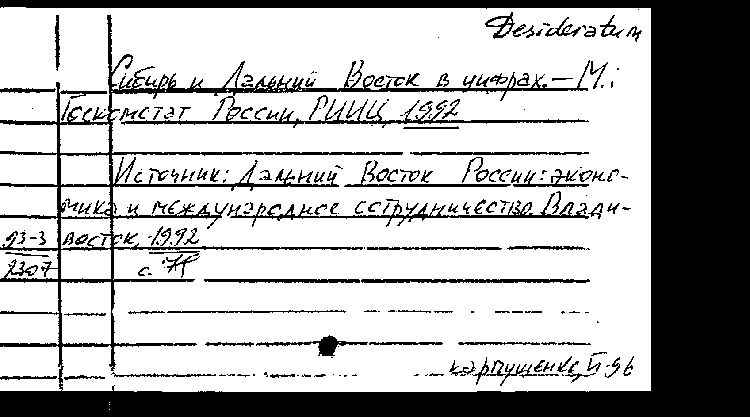 Desideratum
Сибирь и Дальний Восток в цифрах. — М.:
Госкомстат России, РИИЦ, 1992
Источник: Дальний Восток России: эконо-
мика и международное сотрудничество. Влади-
93-3 восток, 1992
2307 с.
карпущенко, VI-96